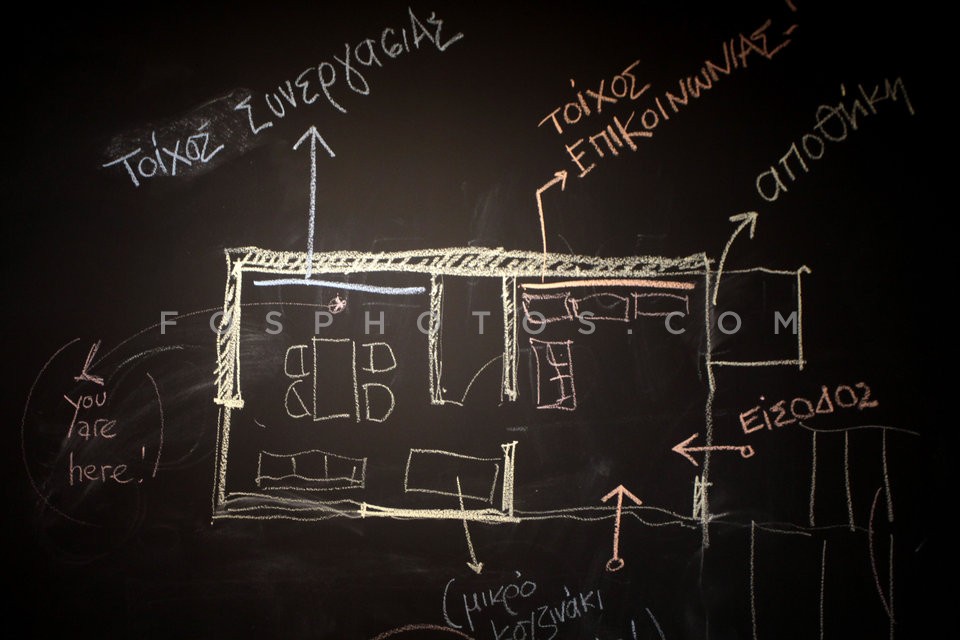 Τοίχος Συνεργασίας
τοίχος
ΕΠΙΚΟΙΝΩΝΙΑΣ!
αποθήκη
FOSPHOTOS.COM
you
are
here!
ΕΙΣΟΔΟΣ
(μικρό
κουζινάκι